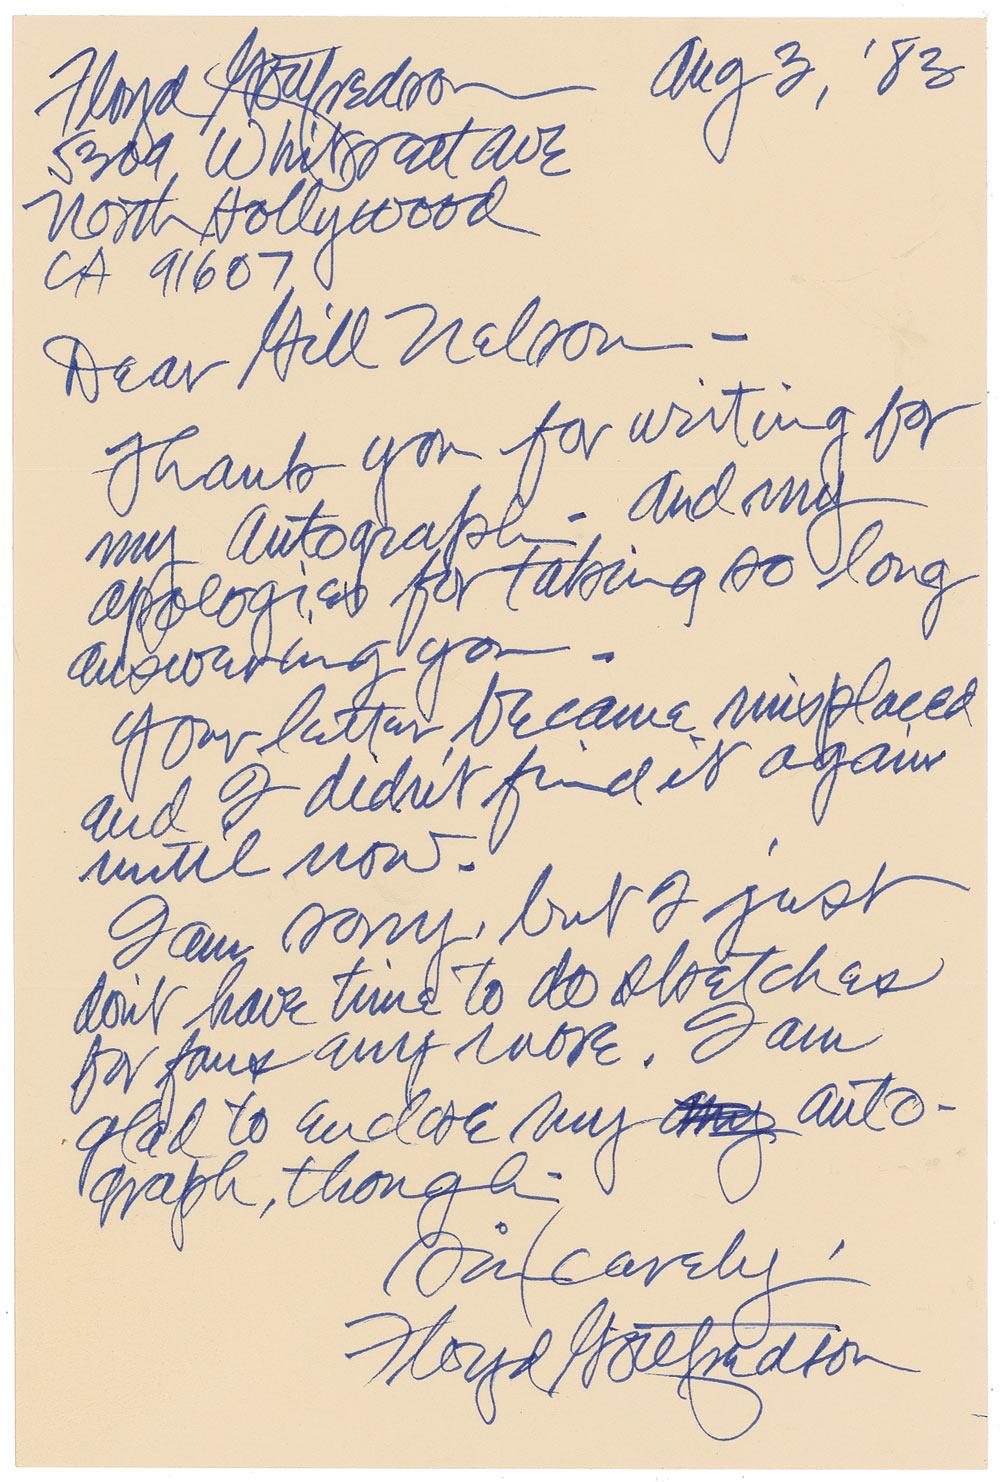 Floyd Gottfredson Aug 3, '83
5309 Whitsett Ave
North Hollywood
CA 91607
Dear Gill Nelson –
Thank you for writing for
my autograph – and my
apologies for taking so long
answering you –
Your letter became misplaced
and I didn't find it again
until now.
I am sorry, but I just
don't have time to do sketches
for fans any more. I am
glad to enclose my my auto-
graph, though –
Sincerely,
Floyd Gottfredson